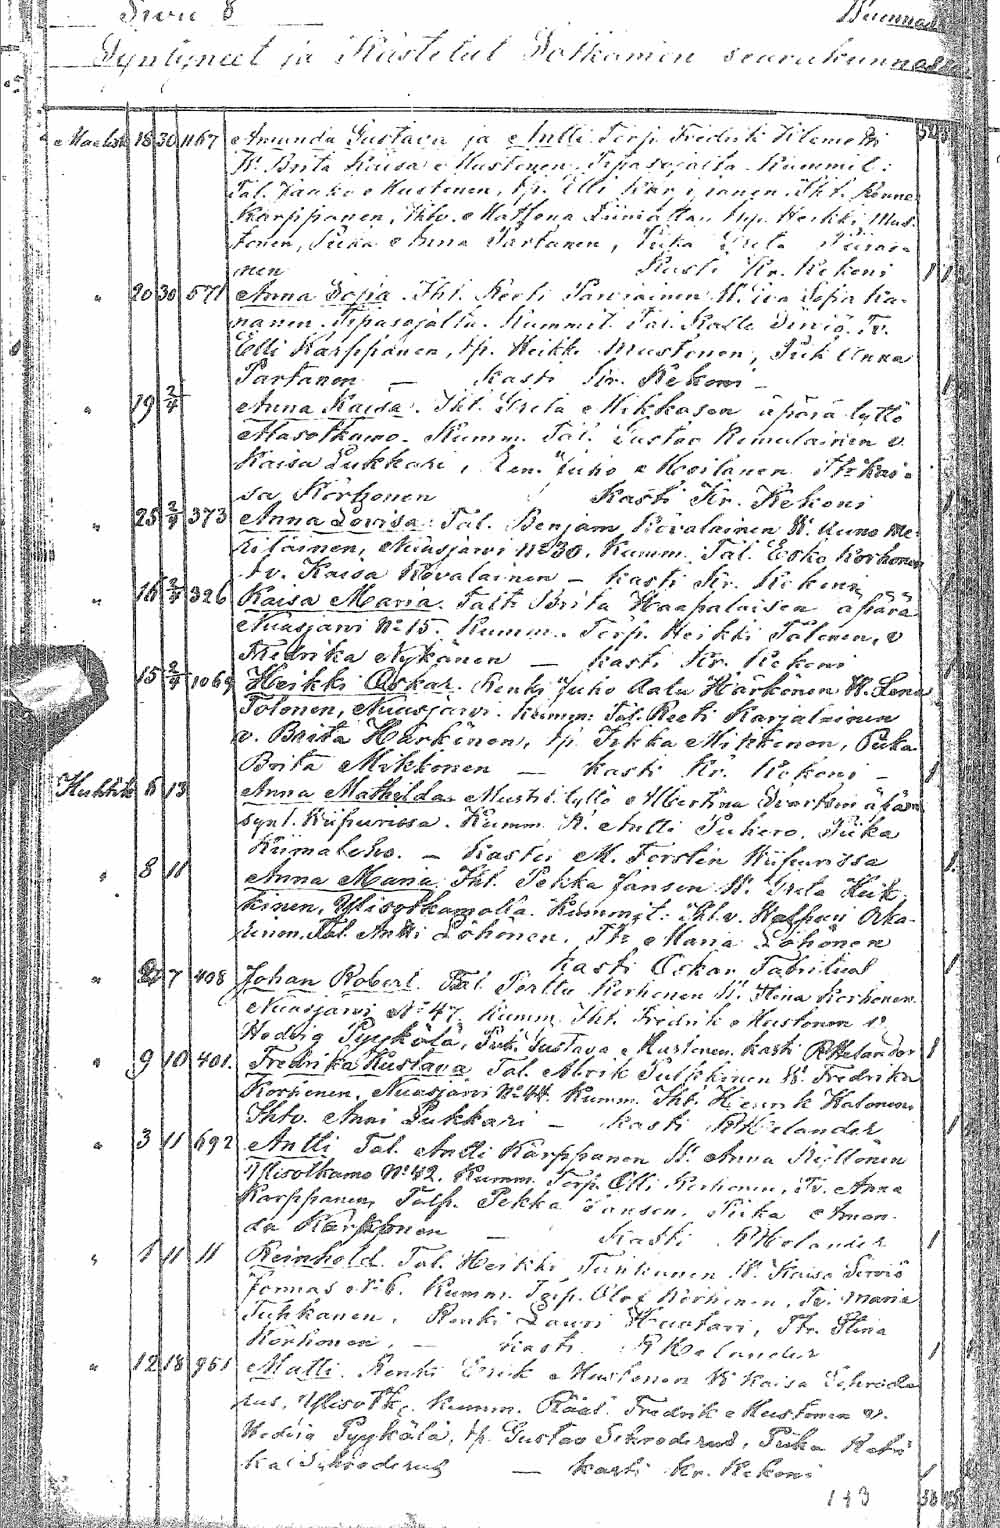 Sivu 8
Syntyneet ja Kastetut Sotkamon seurakunnassa
Maalisk 18 30 1167 Amanda Gustava ja Antti. Torp. Fredrik Klemetti
W. Brita Kaisa Mustonen, Tipasojalta. Kummit:
Tal. Jaako Mustonen, tp. Elli Karppanen, Iht.
Karppanen, Ihtv. Heikki Mus-
tonen, Piika Anna Partanen, Piika Greta Piirai-
nen Kasti Kr. Kekoni 1
" 20 30 571 Anna Sofia. Iht. Perti Parviainen W. Eva Sofia Ka-
nanen. Tipasojalta. Kummit. Tal. Kalle Sirviö. Tv.
Elli Karppanen, tp. Heikki Mustonen, Piik Anna
Partanen — Kasti Kr. Kekoni —
" 19 2/4 Anna Kaisa. Iht. Greta Mikkosen äpärä tyttö
Alasotkamo. Kumm. Tal. Gustav Remulainen v.
Kaisa Lukkari, Ren. Juho Moilanen. Itr Kai-
sa Kortjonen Kasti Kr. Kekoni
" 25 2/4 373 Anna Lovisa. Tal. Benjam. Kovalainen W. Auno Me-
riläinen, Nuasjärvi No 30. Kumm. Tal. Esko Korhonen
tv. Kaisa Kovalainen — kasti Kr. Kekoni
" 16 2/4 326 Kaisa Maria. Taltr Brita Haapalaisen äpärä
Nuasjärvi No 15. Kumm. Torp. Heikki Tolonen, v
Fredrika Nykänen — kasti Kr. Kekoni
15 2/4 1069 Heikki Oskar. Renki Juho Aatu Härkönen W. Lena
Tolonen, Nuasjärvi. Kumm: Tal. Perti Karjalainen
v. Brita Härkönen, tp. Jikka Mikkonen, Piika
Brita Mikkonen — kasti Kr. Kekoni — 1
Huhtik 6 13 Anna Mathilda. tyttö Albertina äpärä
synt. Wiipurissa. Kumm. R. Antti Puhero, Piika
Kiimalcho. — Kastei M. Forstén Wiipurissa 1.
" 8 11 Anna Maria. Iht. Pekka Jansen W. Greta Heik-
kinen, Ylisotkamolta. Kummit: Iht. v.
Tal. Antti Löhönen, Itr Maria Löhönen
kasti Oskar Fabritius 1
" 7 408 Johan Robert. Tal. Perttu Korhonen W. Stina Korhonen.
Nuasjärvi No 47. Kumm. Iht. Fredrik Mustonen v.
Hedvig Pyykölä, Piik. Gustava Mustonen. kasti R Helander 1
" 9 10 401. Fredrika Kustava Tal. Aterik Pulkkinen W. Fredrika
Korhonen, Nuasjärvi No 44. Kumm. Iht. Henrik Halonen,
Ihtv. Anni Lukkari — kasti R Helander 1
" 3 11 692 Antti Tal. Antti Karppanen W. Anna Röttönen
Ylisotkamo No 42. Kumm. Torp. Olli Korhonen, Tv. Anna
Karppanen, Talp. Pekka Jansen, Piika Aman-
da Karppanen — kasti R Helander 1
" 1 11 11 Reinhold. Tal. Heikki Tuhkanen W. Kaisa Sirviö
Jormas No 6. Kumm. Torp. Olof Korhonen, Tv. Maria
Tuhkanen, Renki Lauri Huotari, Itr. Stina
Korhonen — kasti R Helander 1
" 12 18 961 Matti. Renki Erik Mustonen W. Kaisa Schrode-
rus, Ylisotk. Kumm. Räät. Fredrik Mustonen v.
Hedvig Pyykölä, tp. Gustav Schroderus, Piika
Schroderus — kasti Kr. Kekoni 1
143